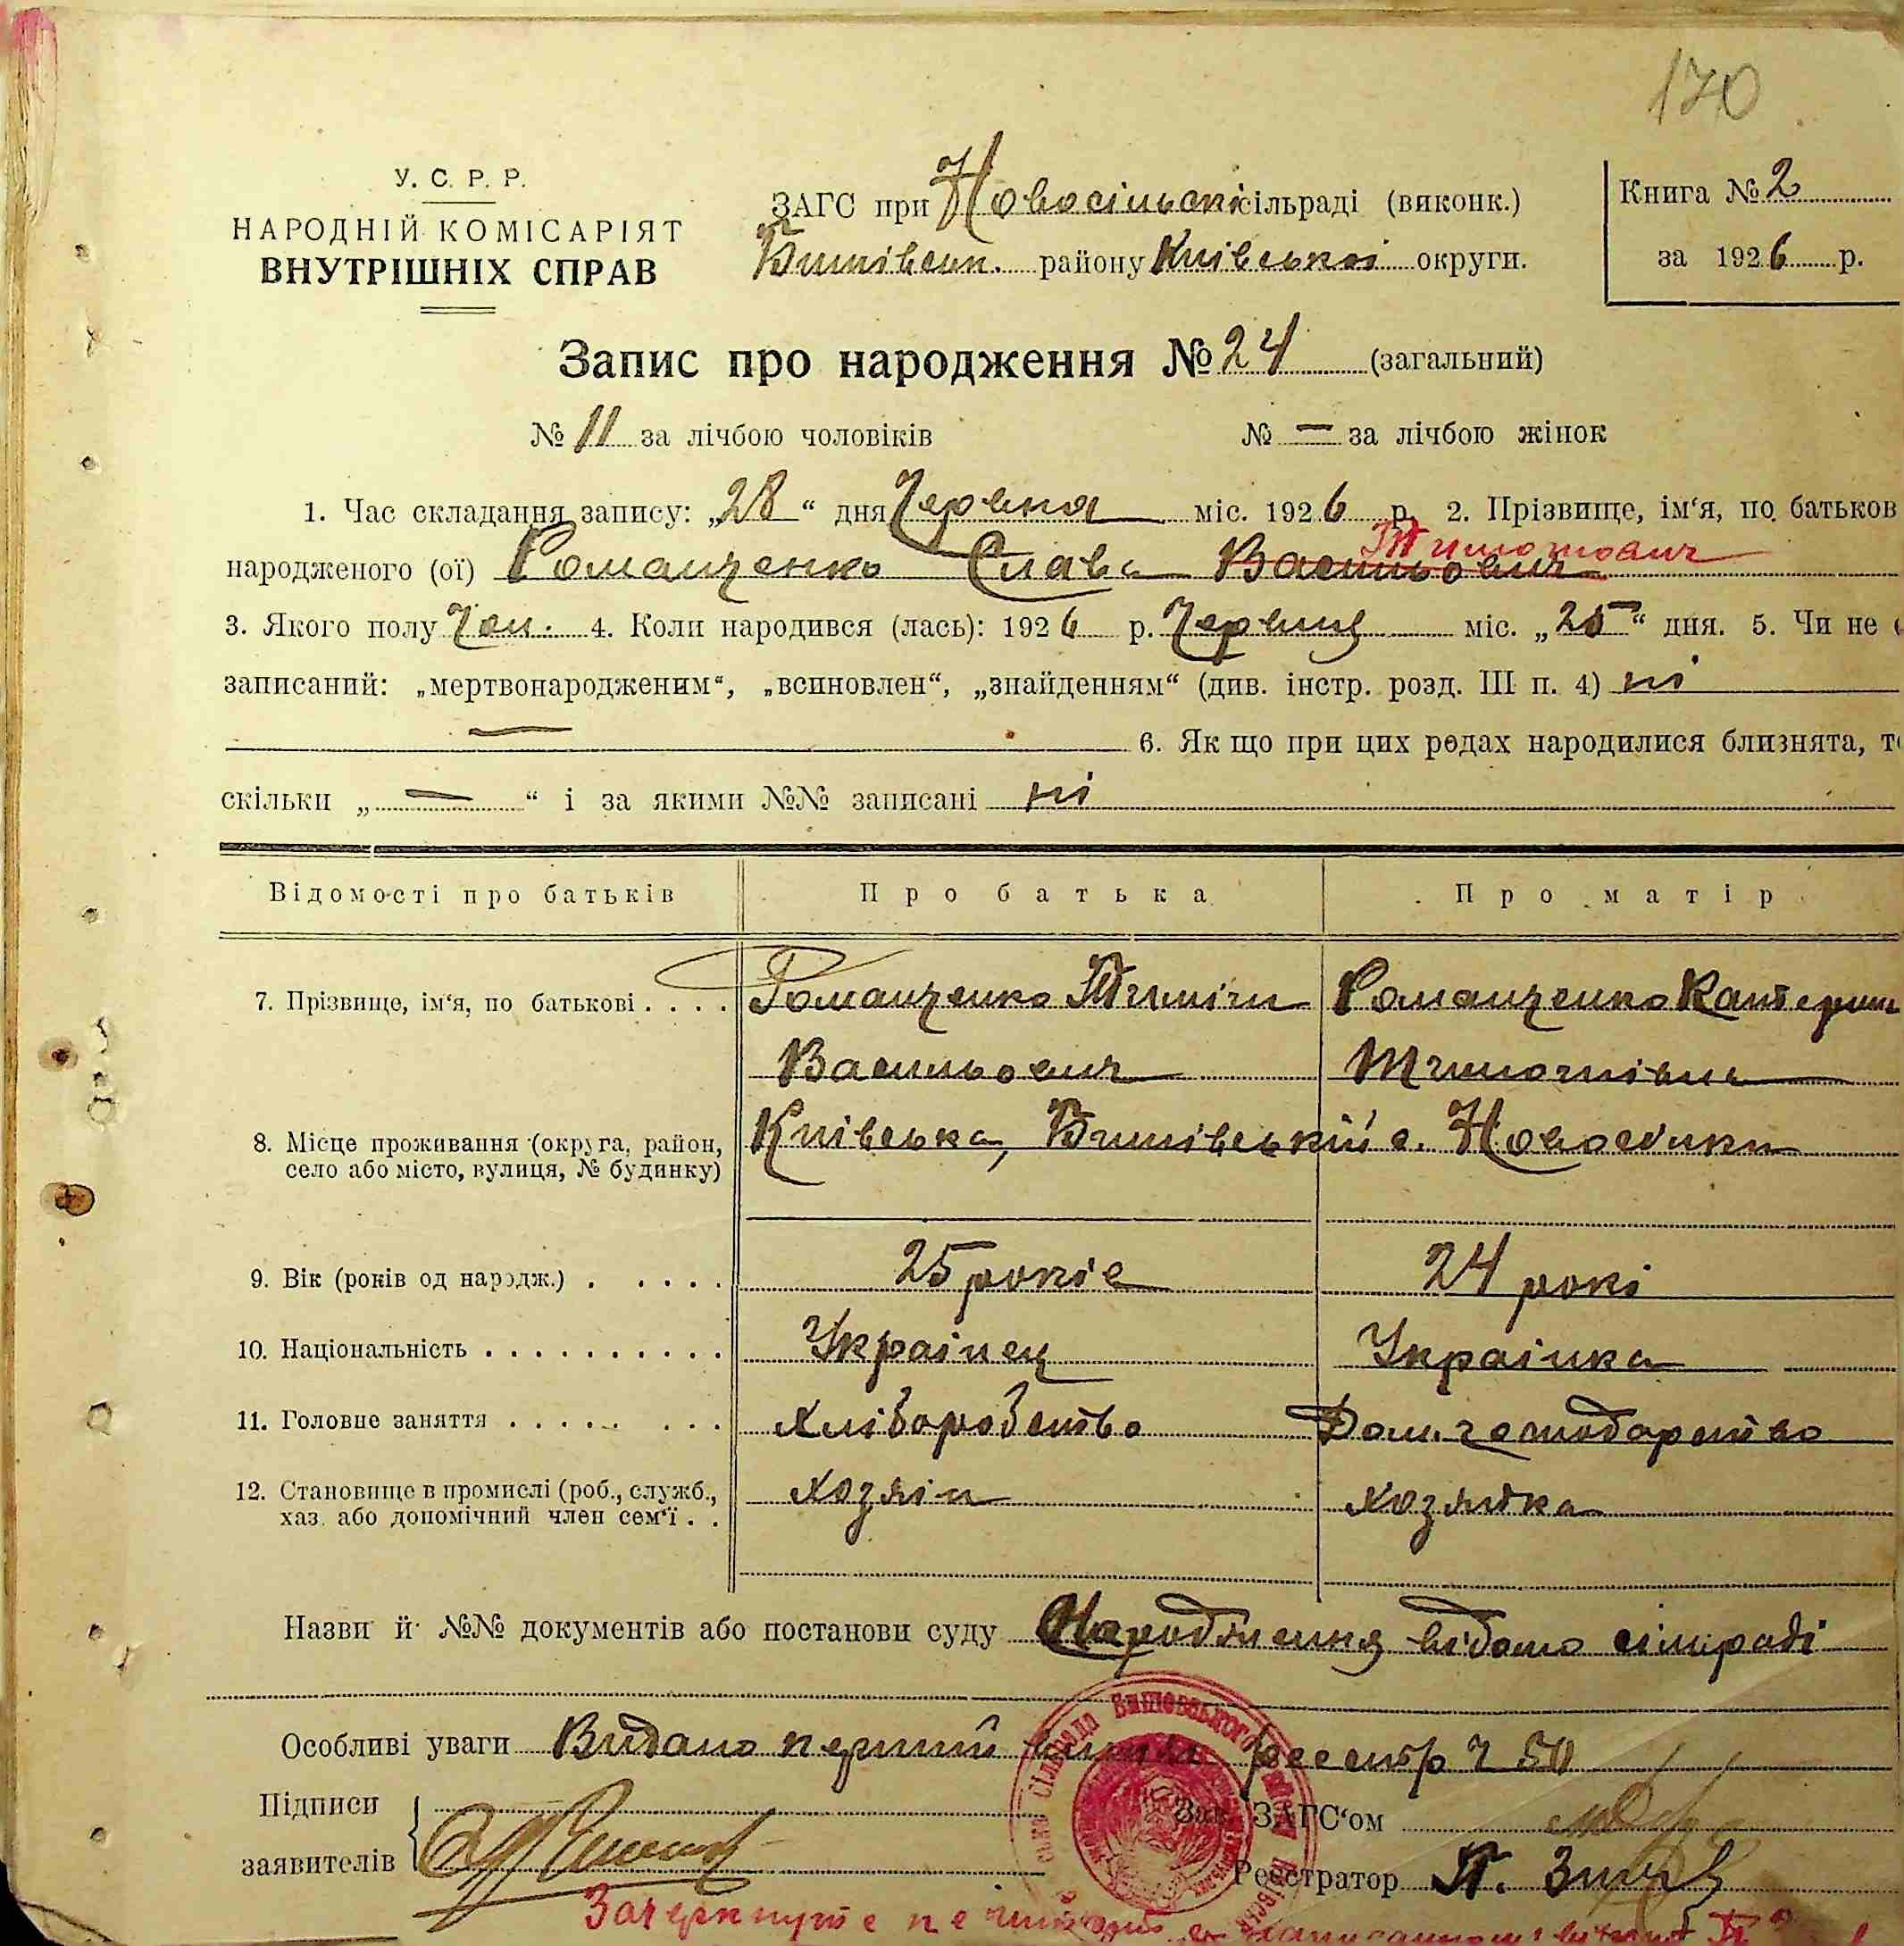 170
У. С. Р. Р.
НАРОДНІЙ КОМІСАРІЯТ
ВНУТРІШНІХ СПРАВ
ЗАГС при Новосільскі сільраді (виконк.)
району Київської округи.
Книга № 2
за 1926 р.
Запис про народження № 24 (загальний)
№ 11 за лічбою чоловіків № — за лічбою жінок
1. Час складання запису: „28“ дня Червня міс. 1926 р. 2. Прізвище, ім‘я, по батьков
Тимотович
народженого (ої) Романченко Слава Васильович
3. Якого полу Чол. 4. Коли народився (лась): 1926 р. Червня міс. „25“ дня. 5. Чи не
записаний: „мертвонародженим“, „всиновлен“, „знайденням“ (див. інстр. розд. III п. 4) ні
— 6. Як що при цих родах народилися близнята, т
скільки „ — “ і за якими №№ записані ні
Відомості про батьків Про батька Про матір
7. Прізвище, ім‘я, по батькові . . . . Романченко Тиміш Романченко Катерина
Васильович Тимотівна
8. Місце проживання (округа, район, Київська, с. Новосілки
село або місто, вулиця, № будинку)
9. Вік (років од народж.) . . . . . 25 років 24 рокі
10. Національність . . . . . . . . . . Українец Українка
11. Головне заняття . . . . . . . . Хліборобство Дом. господарство
12. Становище в промислі (роб., служб., хозяін хозяйка
хаз. або допомічний член сем‘ї . .
Назви й №№ документів або постанови суду Народження відомо сільраді
Особливі уваги Видано перший реестр ч 50
Підписи
заявителів
Зав. ЗАГС‘ом
Реєстратор П.
Зачеркнуте не читать